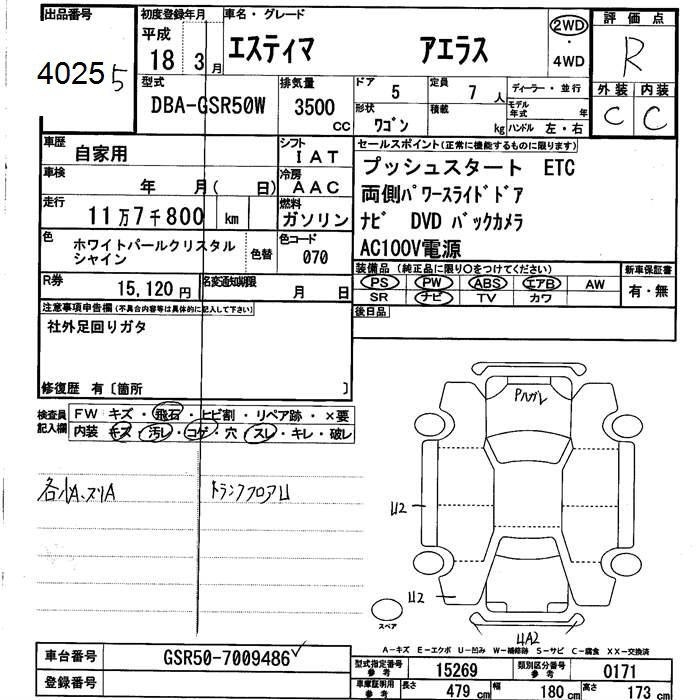 出品番号 初度登録年月 車名・グレード 評価点
平成
40255 18 3月 エスティマ アエラス 2WD ・ 4WD R
型式 排気量 ドア 5 定員 7人 ディーラー・並行 外装 内装
DBA-GSR50W 3500 CC 形状 ワゴン 積載 kg モデル年式 年 ハンドル 左・右 C C
車歴 自家用 シフト IAT セールスポイント(正常に機能するものに限ります)
車検 年 月( 日) 冷房 AAC プッシュスタート ETC
走行 11万7千800 km 燃料 ガソリン 両側パワースライドドア
色 ホワイトパールクリスタル 色替 色コード ナビ DVD バックカメラ
シャイン 070 AC100V電源
R券 15,120円 名変通知期限 月 日 装備品(純正品に限り○をつけてください) 新車保証書
PS PW ABS エアB AW 有・無
SR ナビ TV カワ
注意事項申告欄(不具合内容等は具体的に記入して下さい) 後日品
社外足回りガタ
修復歴 有〔箇所 〕
検査員記入欄 FW キズ・飛石・ヒビ割・リペア跡・×要
内装 キズ・汚レ・コゲ・穴・スレ・キレ・破レ
各小A、スリA トランクフロアU
Pハガレ
U2
U2
スペア
UA2
A-キズ E-エクボ U-凹み W-補修跡 S-サビ C-腐食 XX-交換済
車台番号 GSR50-7009486 型式指定番号 参考 15269 類別区分番号 参考 0171
登録番号 車庫証明用 参考 長さ 479 cm 幅 180 cm 高さ 173 cm